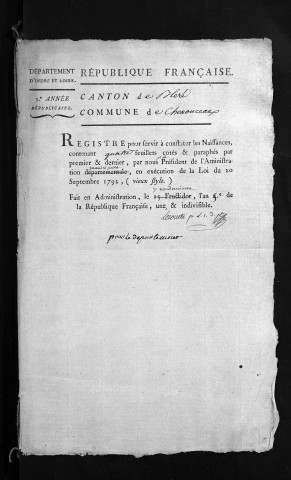 DÉPARTEMENT
D'INDRE ET LOIRE.
RÉPUBLIQUE FRANÇAISE.
5e ANNÉE
RÉPUBLICAINE.
CANTON de Bléré
COMMUNE de Chenonceau
REGISTRE pour servir à constater les Naissances,
contenant quatre feuillets cotés & paraphés par
premier & dernier, par nous Président de l'Administra
tion départementale, en exécution de la Loi du 20
Septembre 1792, ( vieux style. )
Fait en Administration, le 25 Fructidor, l'an 5e de
la République Française, une & indivisible.
pour le département